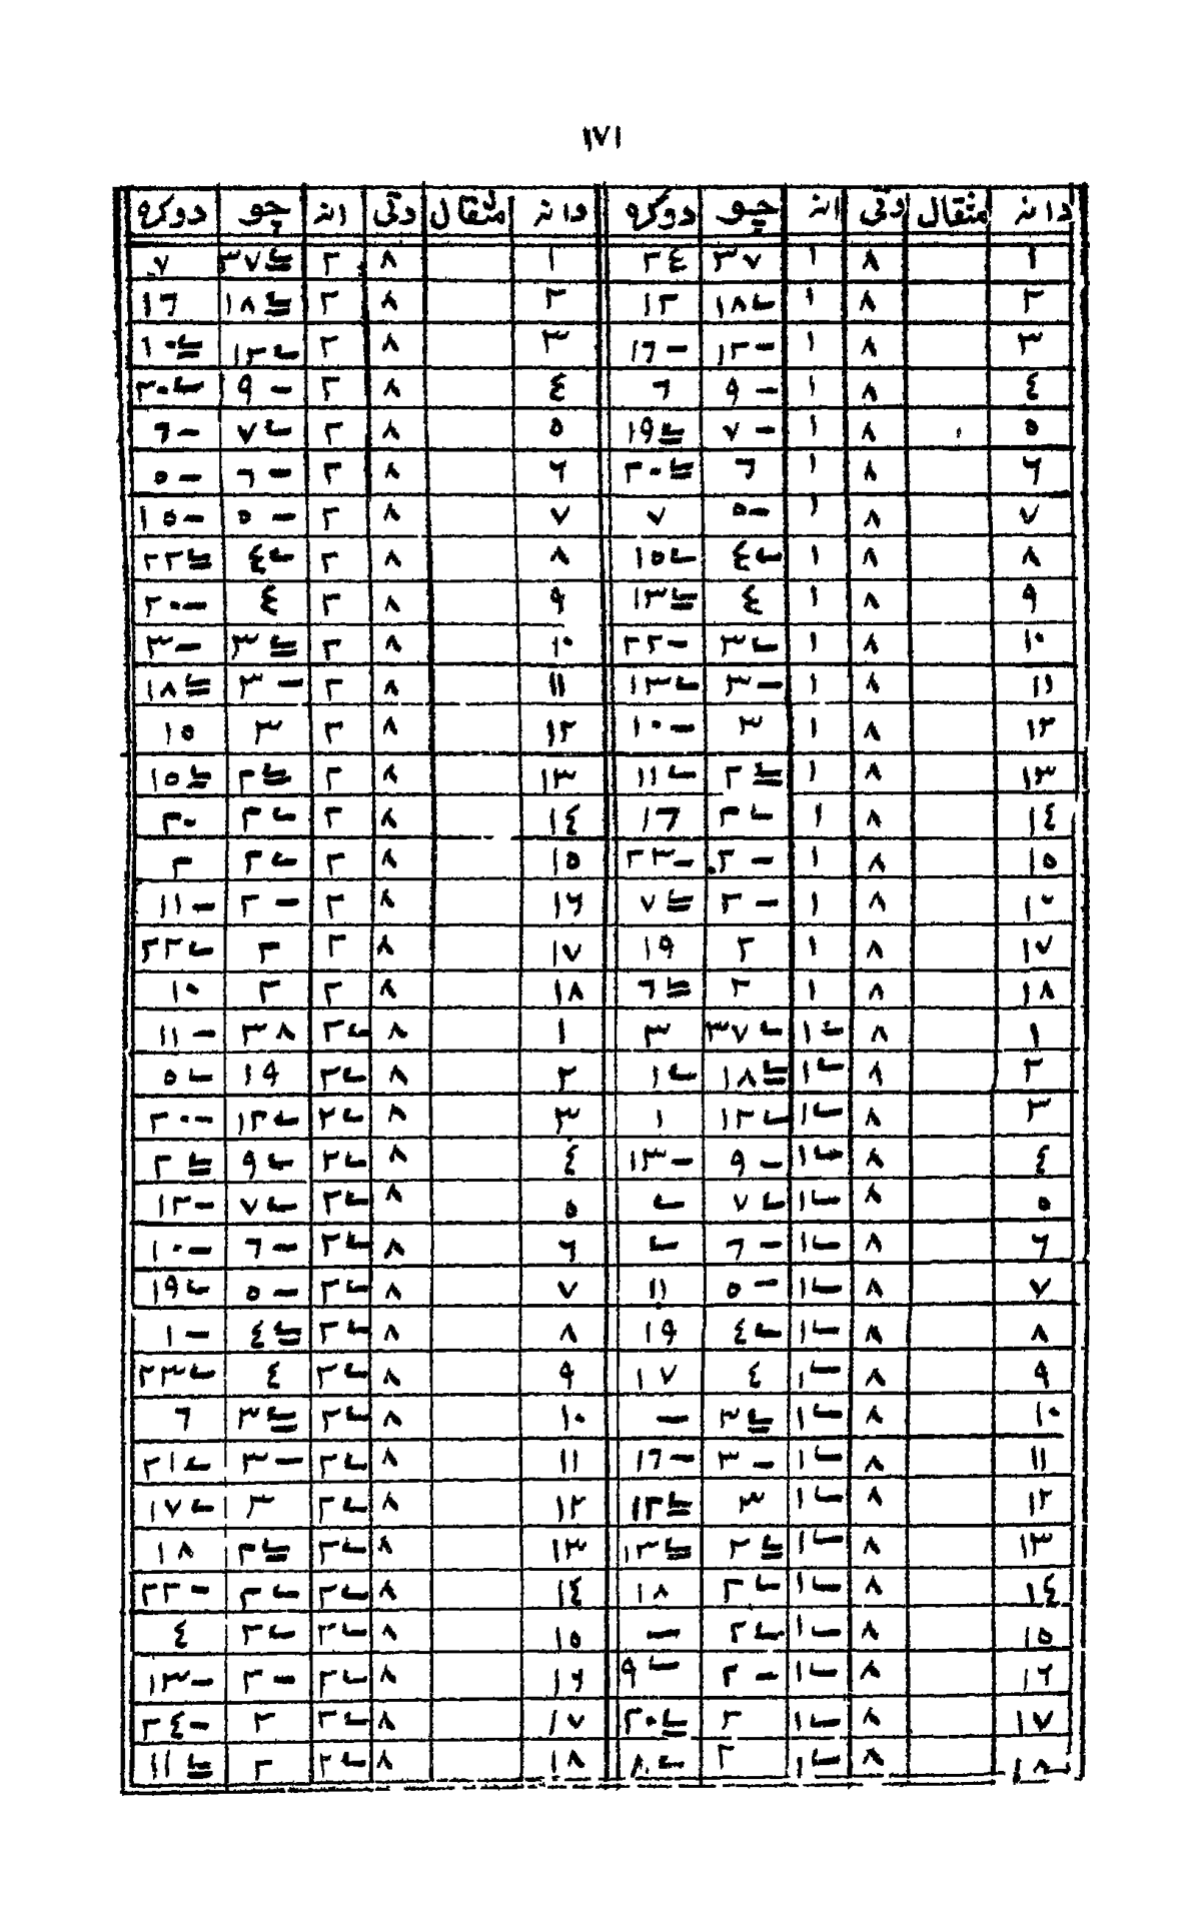 ١٧١
دانه مثقال رتي انه چو دوكره دانه مثقال رتي انه چو دوكره
١ ٨ ١ ٣٧ ٢٤ ١ ٨ ٢ ٣٧ ٧
٢ ٨ ١ ١٨ ١٢ ٢ ٨ ٢ ١٨ ١٦
٣ ٨ ١ ١٢- ١٦- ٣ ٨ ٢ ١٢ ١٠
٤ ٨ ١ ٩- ٦ ٤ ٨ ٢ ٩- ٢٠
٥ ٨ ١ ٧- ١٩ ٥ ٨ ٢ ٧ ٦-
٦ ٨ ١ ٦ ٢٠ ٦ ٨ ٢ ٦- ٥-
٧ ٨ ١ ٥- ٧ ٧ ٨ ٢ ٥- ١٥-
٨ ٨ ١ ٤ ١٥ ٨ ٨ ٢ ٤ ٢٢
٩ ٨ ١ ٤ ١٣ ٩ ٨ ٢ ٤ ٢٠-
١٠ ٨ ١ ٣ ٢٢- ١٠ ٨ ٢ ٣ ٣-
١١ ٨ ١ ٣- ١٣ ١١ ٨ ٢ ٣- ١٨
١٢ ٨ ١ ٣ ١٠- ١٢ ٨ ٢ ٣ ١٥
١٣ ٨ ١ ٢ ١١ ١٣ ٨ ٢ ٢ ١٥
١٤ ٨ ١ ٢ ١٦ ١٤ ٨ ٢ ٢ ٢٠
١٥ ٨ ١ ٢- ٢٣- ١٥ ٨ ٢ ٢ ٢
٨ ١ ٢- ٧ ١٦ ٨ ٢ ٢- ١١-
١٧ ٨ ١ ٢ ١٩ ١٧ ٨ ٢ ٢ ٢٢
١٨ ٨ ١ ٢ ٦ ١٨ ٨ ٢ ٢ ١٠
١ ٨ ١ ٣٧ ٣ ١ ٨ ٢ ٣٨ ١١-
٢ ٨ ١ ١٨ ١ ٢ ٨ ٢ ١٩ ٥
٣ ٨ ١ ١٢ ١ ٣ ٨ ٢ ١٢ ٢٠-
٤ ٨ ١ ٩- ١٣- ٤ ٨ ٢ ٩ ٢
٥ ٨ ١ ٧ ٥ ٨ ٢ ٧ ١٢-
٦ ٨ ١ ٦- ٦ ٨ ٢ ٦- ١٠-
٧ ٨ ١ ٥- ١١ ٧ ٨ ٢ ٥- ١٩
٨ ٨ ١ ٤ ١٩ ٨ ٨ ٢ ٤ ١-
٩ ٨ ١ ٤ ١٧ ٩ ٨ ٢ ٤ ٢٣
١٠ ٨ ١ ٣ - ١٠ ٨ ٢ ٣ ٦
١١ ٨ ١ ٣- ١٦- ١١ ٨ ٢ ٣- ٢١
١٢ ٨ ١ ٣ ١٢ ١٢ ٨ ٢ ٣ ١٧
١٣ ٨ ١ ٢ ١٢ ١٣ ٨ ٢ ٢ ١٨
١٤ ٨ ١ ٢ ١٨ ١٤ ٨ ٢ ٢ ٢٢-
١٥ ٨ ١ ٢ - ١٥ ٨ ٢ ٢ ٤
١٦ ٨ ١ ٢- ٩ ١٦ ٨ ٢ ٢- ١٣-
١٧ ٨ ١ ٢ ٢٠ ١٧ ٨ ٢ ٢ ٢٤-
١٨ ٨ ١ ٢ ٨ ١٨ ٨ ٢ ٢ ١١